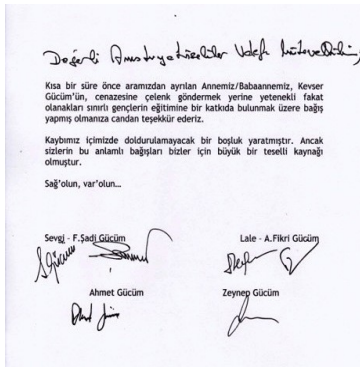 Değerli
Kısa bir süre önce aramızdan ayrılan Annemiz/Babaannemiz, Kevser
Gücüm'ün, cenazesine çelenk göndermek yerine yetenekli fakat
olanakları sınırlı gençlerin eğitimine bir katkıda bulunmak üzere bağış
yapmış olmanıza candan teşekkür ederiz.
Kaybımız içimizde doldurulamayacak bir boşluk yaratmıştır. Ancak
sizlerin bu anlamlı bağışları bizler için büyük bir teselli kaynağı
olmuştur.
Sağ'olun, var'olun...
Sevgi - F.Şadi Gücüm Lale - A.Fikri Gücüm
Ahmet Gücüm Zeynep Gücüm